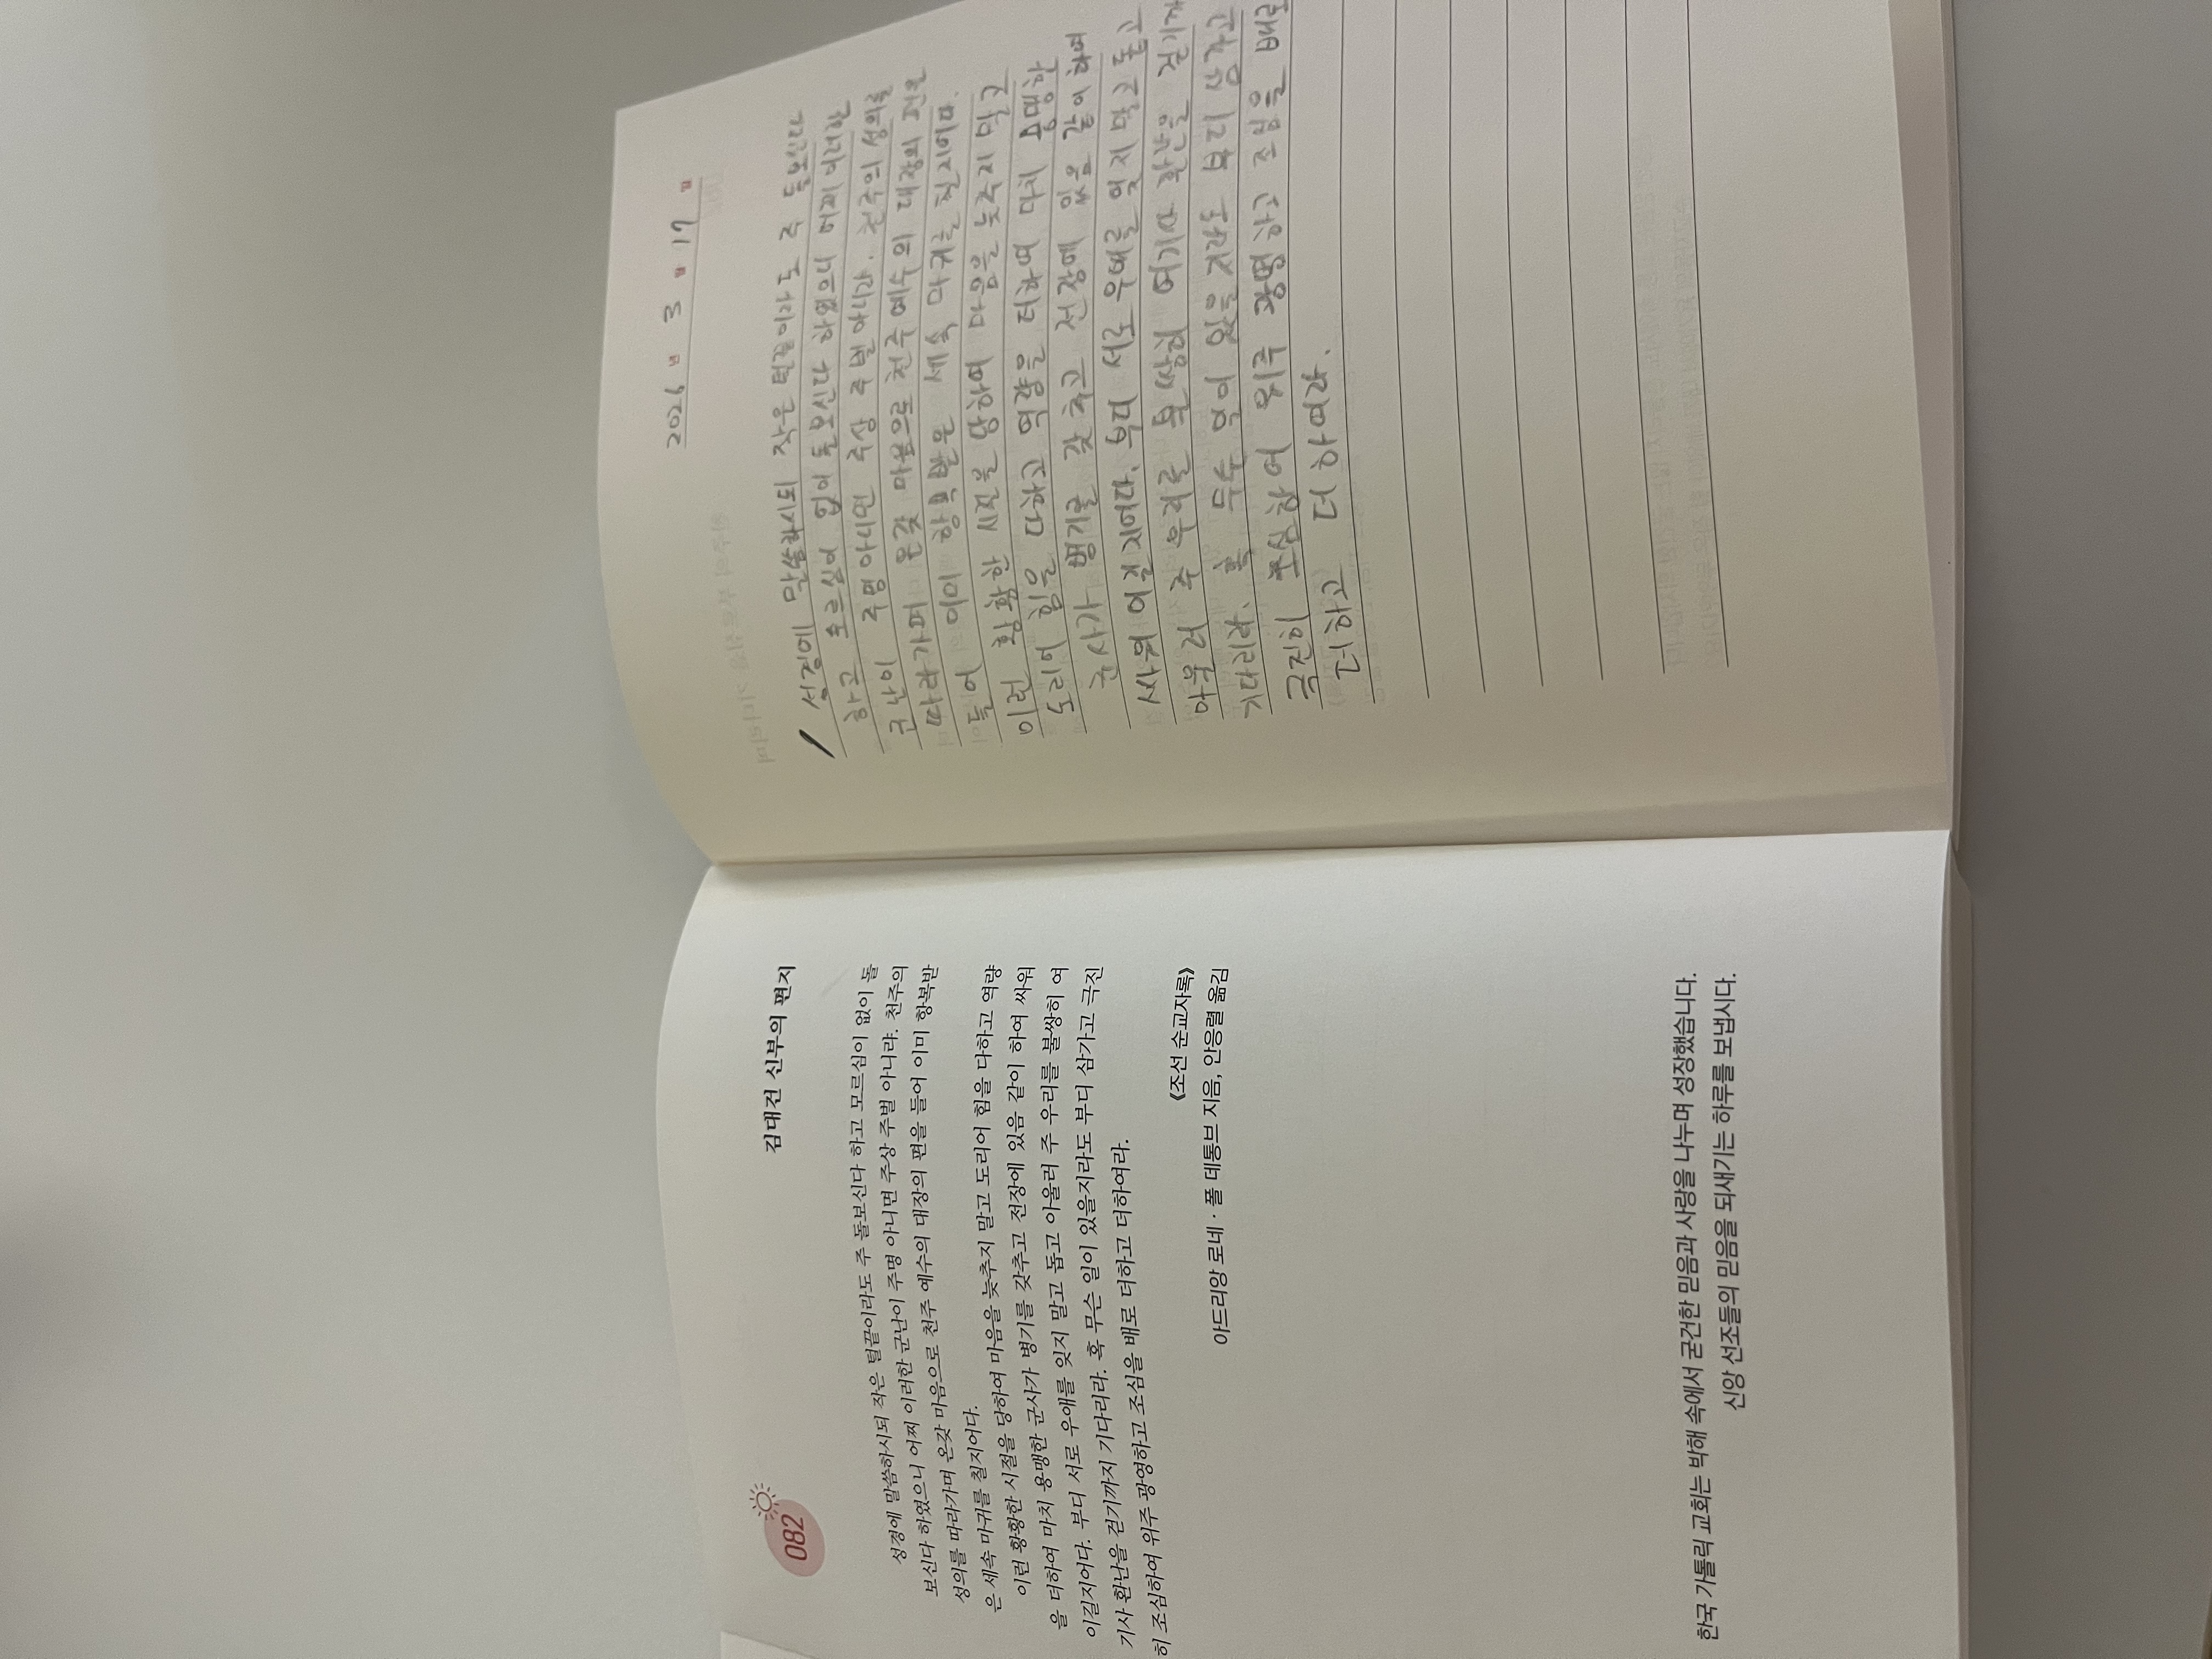 082
김대건 신부의 편지
성경에 말씀하시되 작은 털끝이라도 주 돌보신다 하고 모르심이 없이 돌
보신다 하였으니 어찌 이러한 군난이 주명 아니면 주상 주벌 아니랴. 천주의
성의를 따라가며 온갖 마음으로 천주 예수의 대장의 편을 들어 이미 항복받
은 세속 마귀를 칠지어다.
이런 황황한 시절을 당하여 마음을 늦추지 말고 도리어 힘을 다하고 역량
을 더하여 마치 용맹한 군사가 병기를 갖추고 전장에 있음 같이 하여 싸워
이길지어다. 부디 서로 우애를 잊지 말고 돕고 아울러 주 우리를 불쌍히 여
기사 환난을 걷기까지 기다리라. 혹 무슨 일이 있을지라도 부디 삼가고 극진
히 조심하여 위주 광영하고 조심을 배로 더하고 더하여라.
《조선 순교자록》
아드리앙 로네 · 폴 데통브 지음, 안응렬 옮김
한국 가톨릭 교회는 박해 속에서 굳건한 믿음과 사랑을 나누며 성장했습니다.
신앙 선조들의 믿음을 되새기는 하루를 보냅시다.
2026 년 3 월 17 일
성경에 말씀하시되 작은 털끝이라도 주 돌보신다
하고 모르심이 없이 돌보신다 하였으니 어찌 이러한
군난이 주명 아니면 주상 주벌 아니랴. 천주의 성의를
따라가며 온갖 마음으로 천주 예수의 대장의 편을
들어 이미 항복받은 세속 마귀를 칠지어다.
이런 황황한 시절을 당하여 마음을 늦추지 말고
도리어 힘을 다하고 역량을 더하여 마치 용맹한
군사가 병기를 갖추고 전장에 있음 같이 하여
싸워 이길지어다. 부디 서로 우애를 잊지 말고 돕고
아울러 주 우리를 불쌍히 여기사 환난을 걷기까
기다리라. 혹 무슨 일이 있을지라도 부디 삼가고
극진히 조심하여 위주 광영하고 조심을 배로
더하고 더하여라.